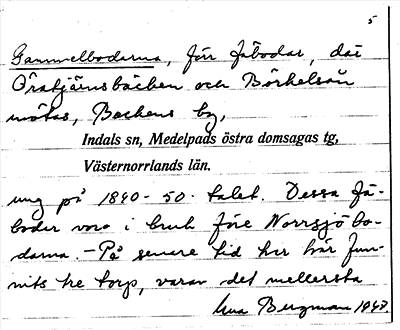 5
Gammelbodarna, förr fäbodar, där
Öratjärnsbäcken och Börhelsån
mötas, Backens by,
Indals sn, Medelpads östra domsagas tg,
Västernorrlands län.
ung på 1840-50-talet. Dessa fä-
bodar voro i bruk före Norrsjöbo-
darna. - På senare tid har här fun-
nits tre torp, varav det mellersta
Bergman 1947.